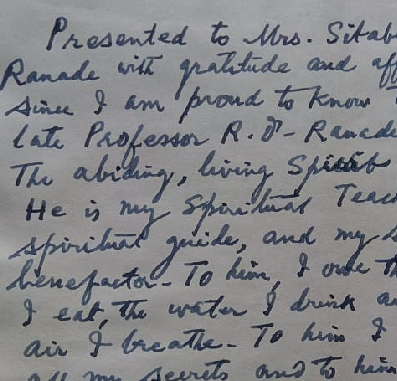 Presented to Mrs. Sitab
Ranade with gratitude and aff
since I am proud to know
late Professor R. D. Ranade
The abiding, living Spirit
He is my Spiritual Teac
spiritual guide, and my s
benefactor. To him, I owe th
I eat, the water I drink a
air I breathe. To him I
all my secrets and to him